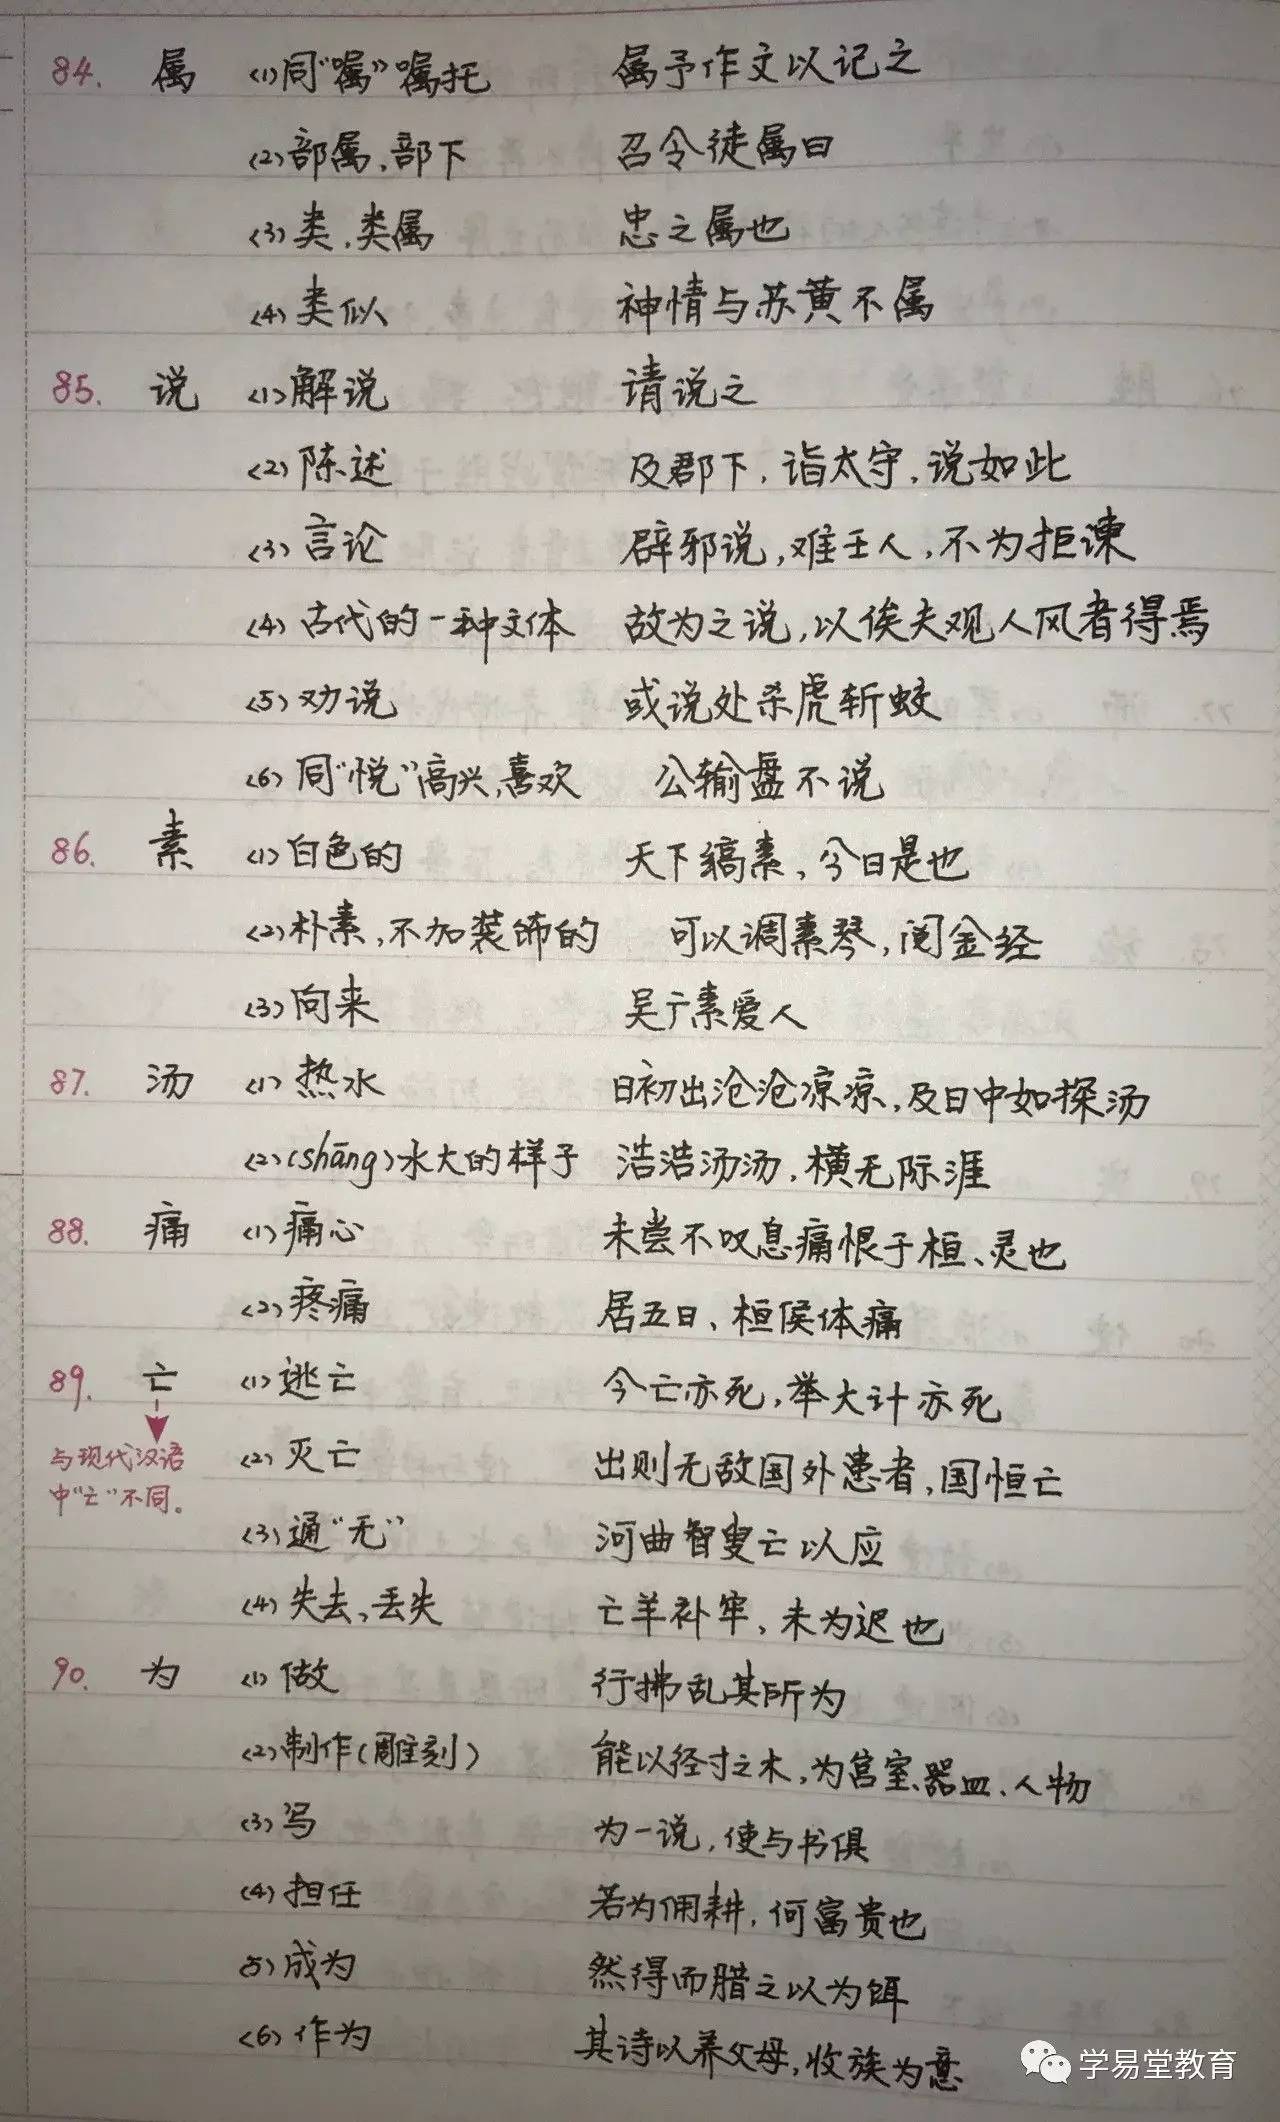 84. 属 (1)同“嘱”嘱托 属予作文以记之
(2)部属,部下 召令徒属曰
(3)类,类属 忠之属也
(4)类似 神情与苏黄不属
85. 说 (1)解说 请说之
(2)陈述 及郡下,诣太守,说如此
(3)言论 辟邪说,难壬人,不为拒谏
(4)古代的一种文体 故为之说,以俟夫观人风者得焉
(5)劝说 或说处杀虎斩蛟
(6)同“悦”高兴,喜欢 公输盘不说
86. 素 (1)白色的 天下缟素,今日是也
(2)朴素,不加装饰的 可以调素琴,阅金经
(3)向来 吴广素爱人
87. 汤 (1)热水 日初出沧沧凉凉,及日中如探汤
(2)(shāng)水大的样子 浩浩汤汤,横无际涯
88. 痛 (1)痛心 未尝不叹息痛恨于桓、灵也
(2)疼痛 居五日、桓侯体痛
89. 亡 (1)逃亡 今亡亦死,举大计亦死
与现代汉语
中“亡”不同。
(2)灭亡 出则无敌国外患者,国恒亡
(3)通“无” 河曲智叟亡以应
(4)失去、丢失 亡羊补牢,未为迟也
90. 为 (1)做 行拂乱其所为
(2)制作(雕刻) 能以径寸之木,为宫室、器皿、人物
(3)写 为一说,使与书俱
(4)担任 若为佣耕,何富贵也
(5)成为 然得而腊之以为饵
(6)作为 其诗以养父母,收族为意
学易堂教育